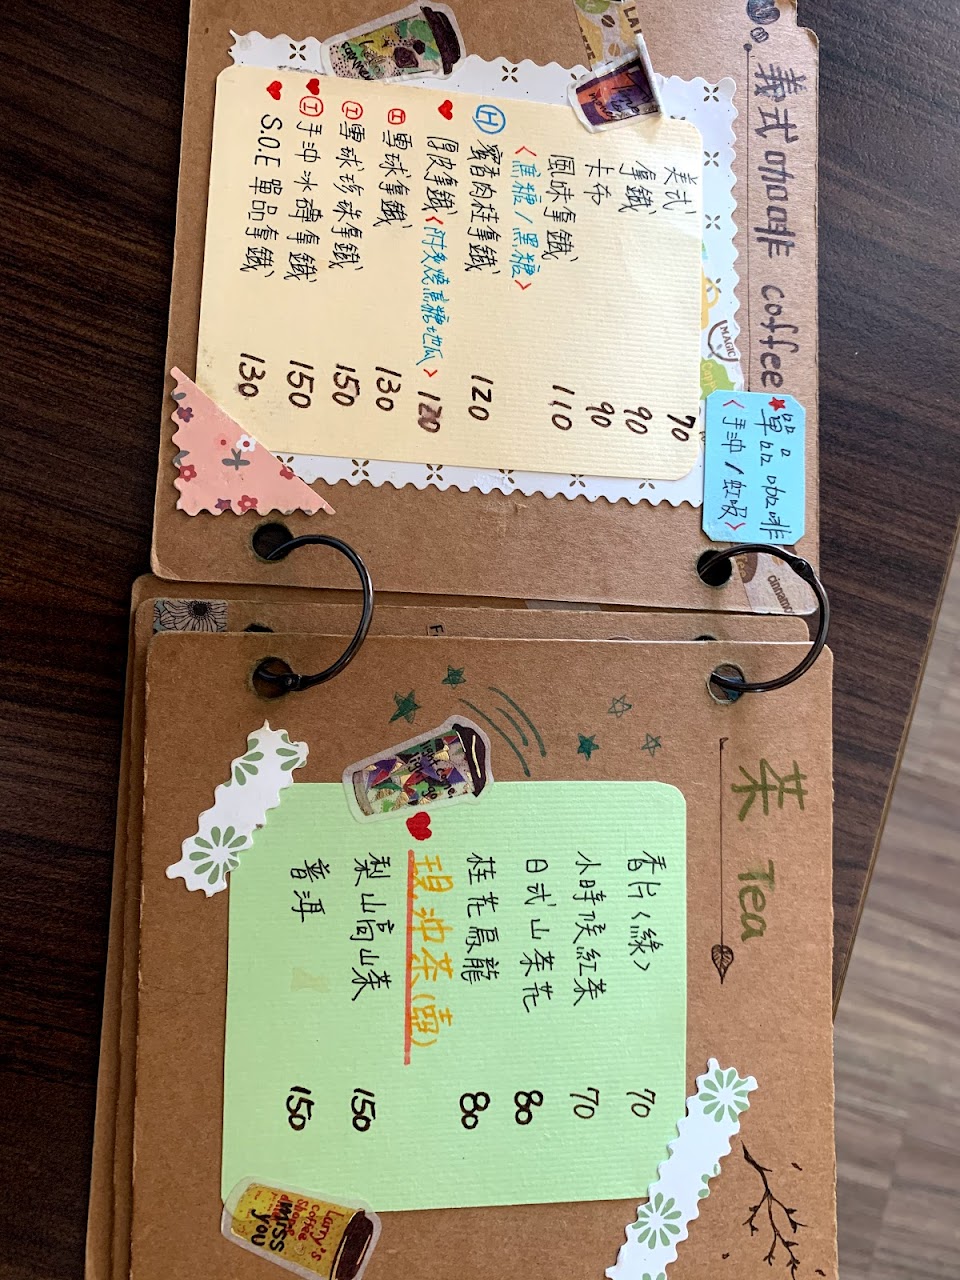 義式咖啡 coffee
美式 70
拿鐵 90
卡布 90
風味拿鐵 110
<焦糖/黑糖>
Ⓗ 蜜香肉桂拿鐵 120
厚皮拿鐵<附炙燒焦糖地瓜> 120
Ⓘ 雪球拿鐵 130
Ⓘ 雪球珍珠拿鐵 150
Ⓘ 手沖冰磚拿鐵 150
S.O.E 單品拿鐵 130
單品咖啡
<手沖/虹吸>
MAGIC
cinnamo
茶 Tea
香片<綠> 70
小時候紅茶 70
日式山茶花 80
桂花烏龍 80
現沖茶(壺)
梨山高山茶 150
普洱 150
Larry's
coffee
Shape
miss
you